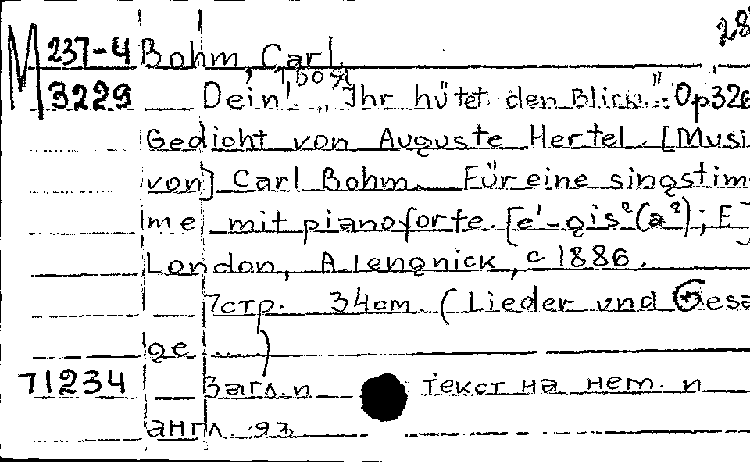 28
М 237-4 Bohm, Carl.
Твоя
3229 Dein! „Ihr hütet den Blick..." Op 326
Gedicht von Auguste Hertel. [Musi
von] Carl Bohm. Für eine singstim-
me mit pianoforte. [e'-gis²(a²); E]
London, A. Lengnick, c 1886.
7 стр. 34 cm. (Lieder und Gesä
ge ...)
71234 Загл. и текст на нем. и
англ. яз.